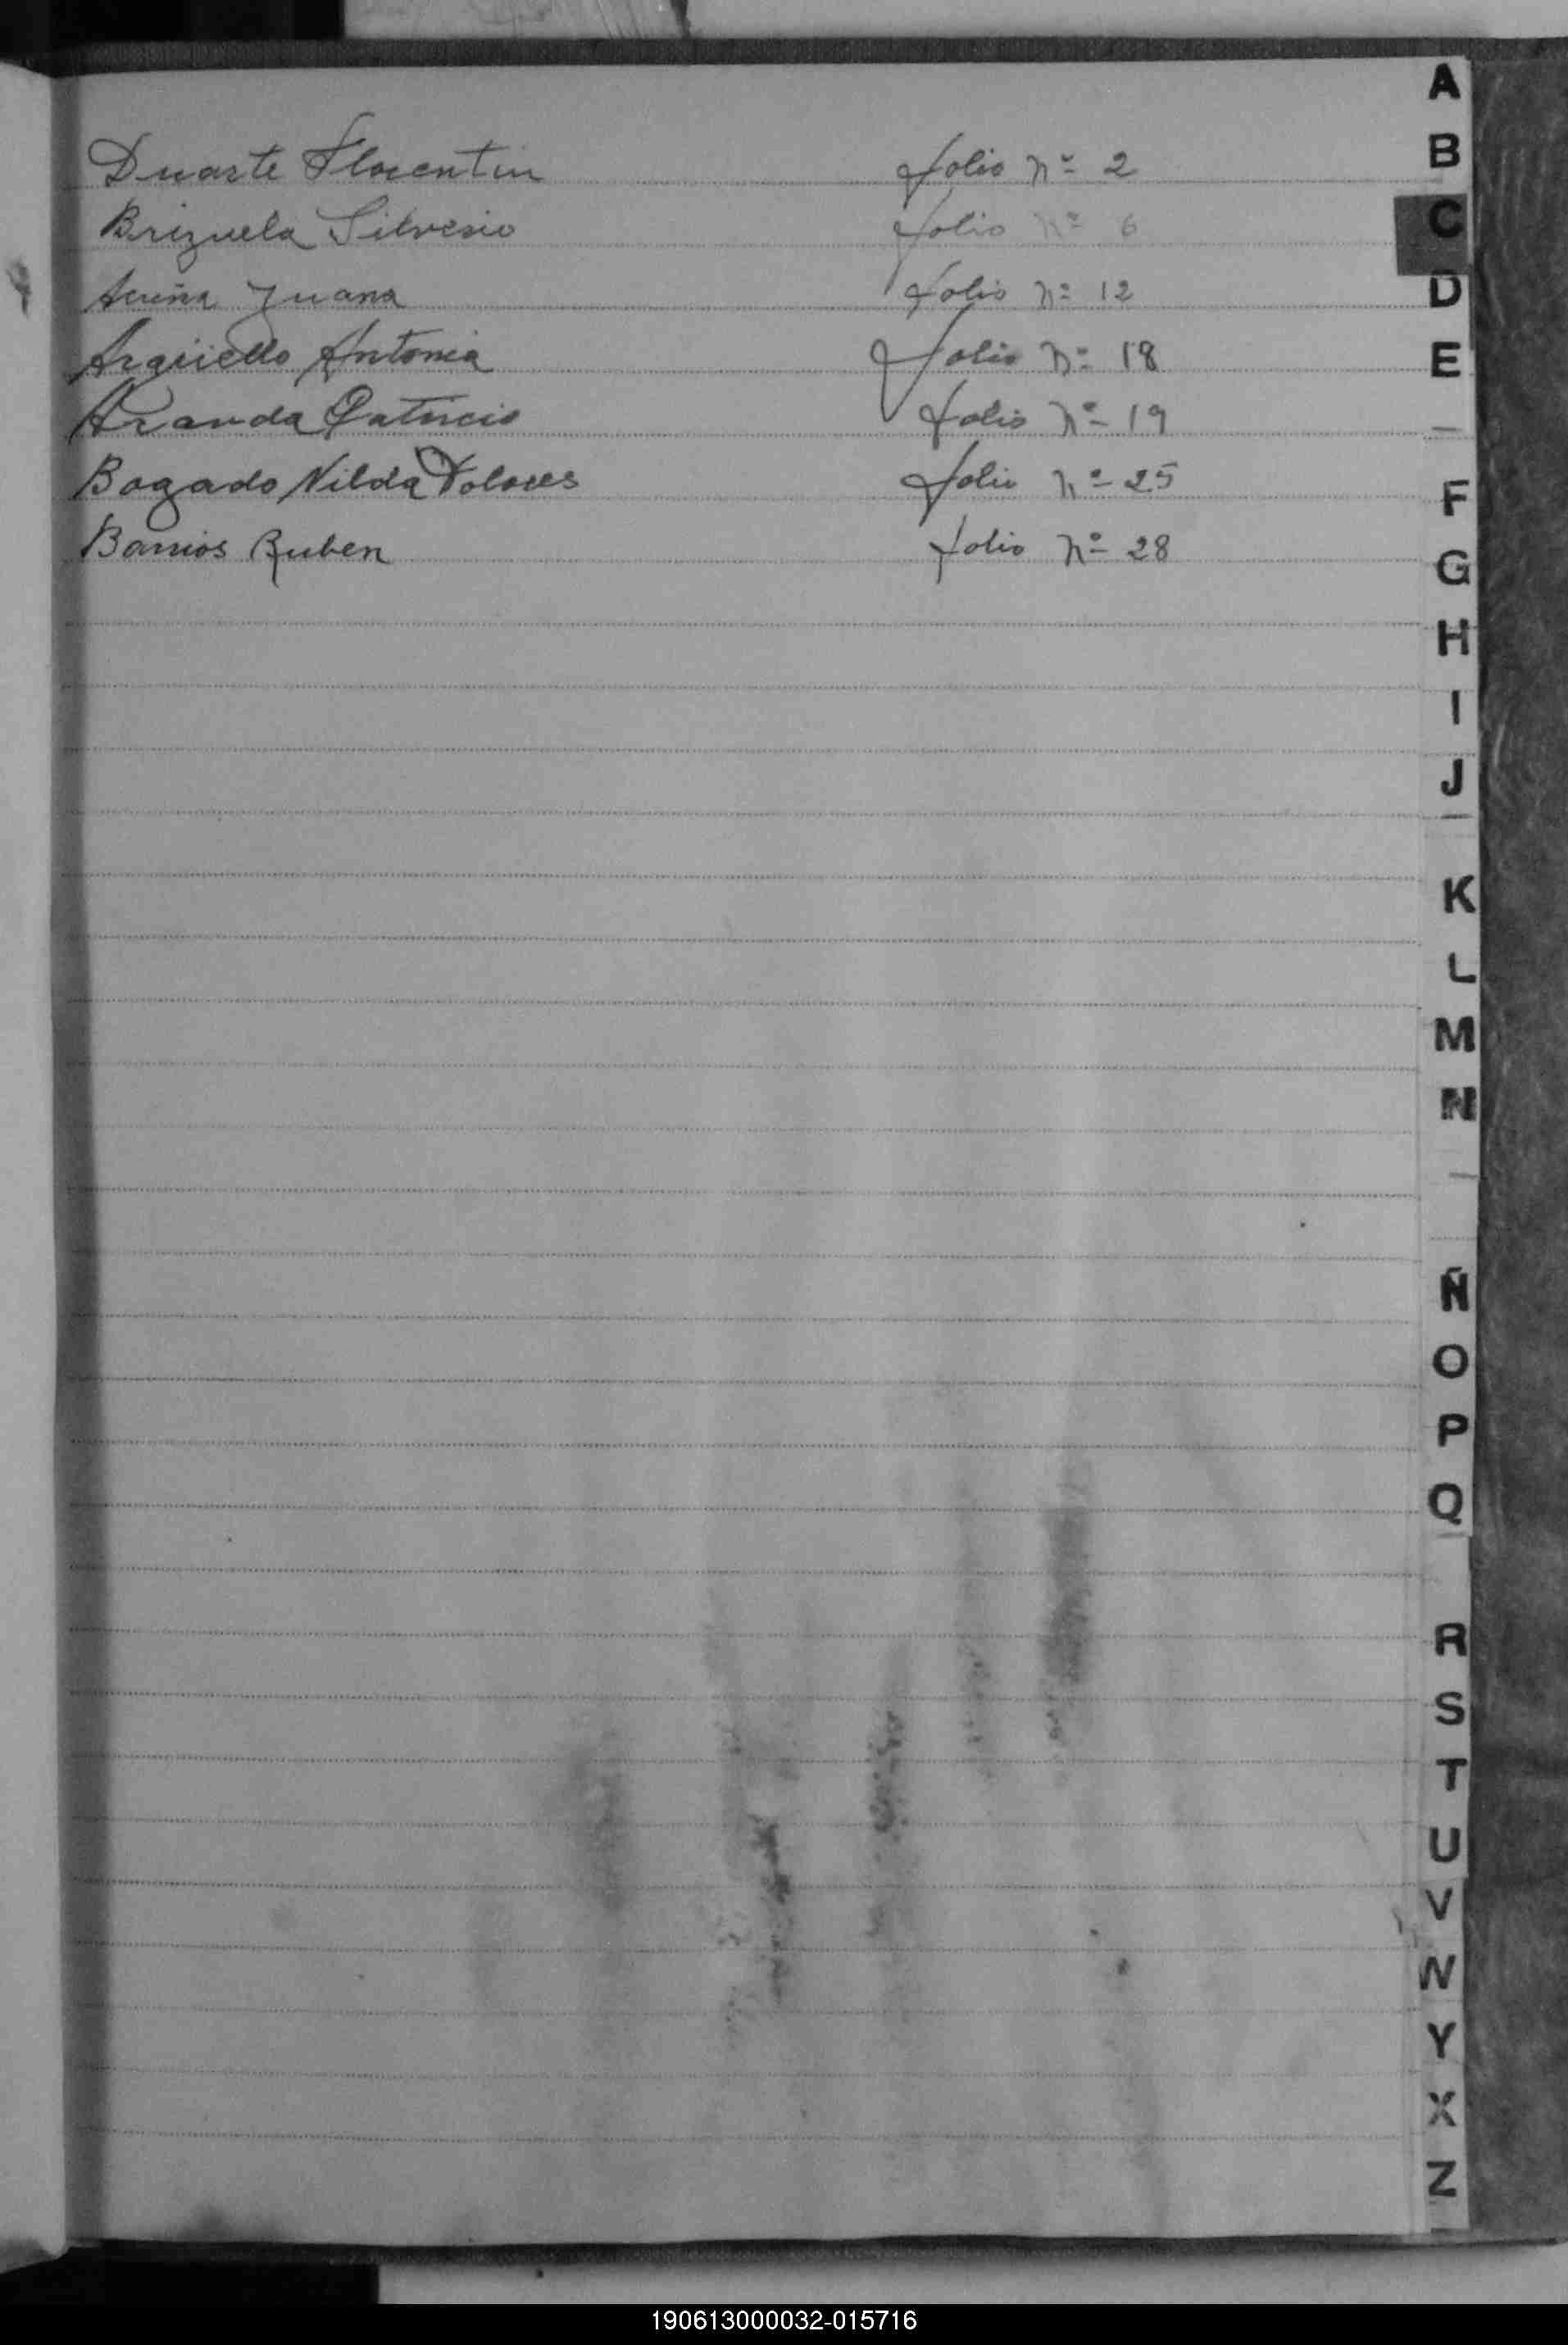 Duarte Florentin folio nº 2
Brizuela Silverio folio nº 6
Acuña Juana folio nº 12
Argüello Antonia folio nº 18
Aranda Patricio folio nº 19
Bogado Nilda Dolores folio nº 25
Barrios Ruben folio nº 28
A
B
C
D
E
F
G
H
I
J
K
L
M
N
Ñ
O
P
Q
R
S
T
U
V
W
Y
X
Z
190613000032-015716